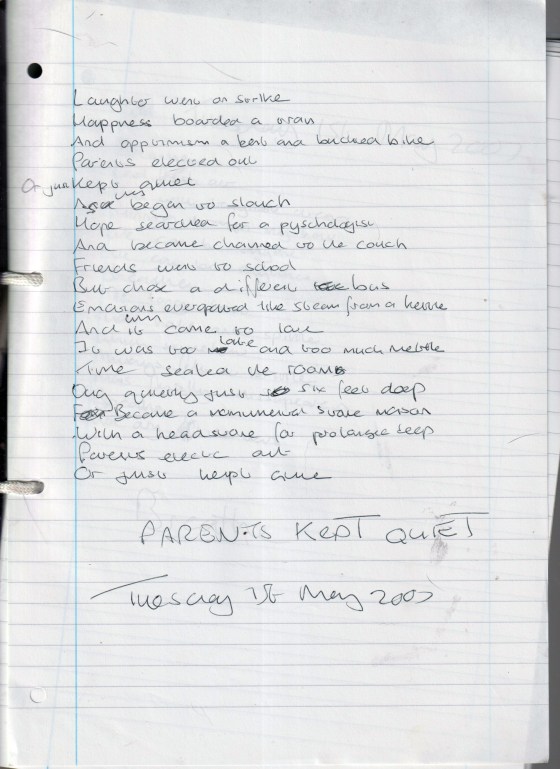 Laughter went on strike
Happness boarded a train
And opptimism a bent and buckled bike
Parents elected out
Or just kept quiet
began to slouch
Hope searched for a pyschologist
And became chained to the couch
Friends went to school
But chose a different bus
Emotions evaporated like steam from a kettle
And it came to late
It was too late and too much
Time sealed the room
Dug quietly just six feet deep
Became a
With a headstone for prolonged sleep
Parents elect out
Or just kept quiet
PARENTS KEPT QUIET
Tuesday May